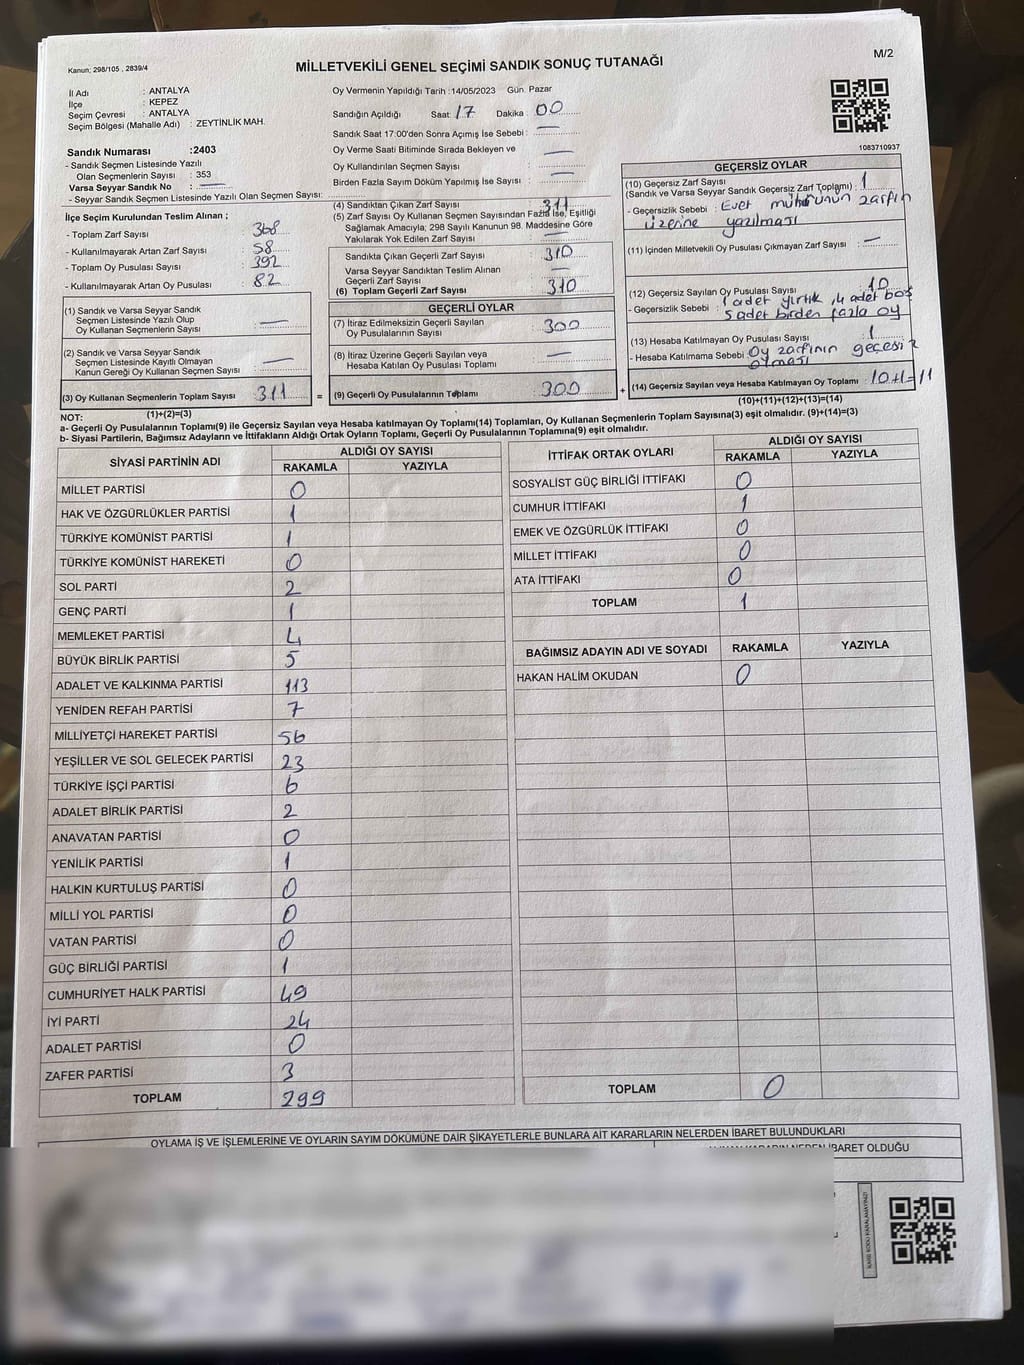 Kanun; 298/105 , 2839/4
MİLLETVEKİLİ GENEL SEÇİMİ SANDIK SONUÇ TUTANAĞI
M/2
İl Adı : ANTALYA
İlçe : KEPEZ
Seçim Çevresi : ANTALYA
Seçim Bölgesi (Mahalle Adı) : ZEYTİNLİK MAH.
Sandık Numarası :2403
- Sandık Seçmen Listesinde Yazılı
Olan Seçmenlerin Sayısı : 353
Varsa Seyyar Sandık No : —
- Seyyar Sandık Seçmen Listesinde Yazılı Olan Seçmen Sayısı:
İlçe Seçim Kurulundan Teslim Alınan ;
- Toplam Zarf Sayısı : 368
- Kullanılmayarak Artan Zarf Sayısı : 58
- Toplam Oy Pusulası Sayısı : 392
- Kullanılmayarak Artan Oy Pusulası : 82
(1) Sandık ve Varsa Seyyar Sandık
Seçmen Listesinde Yazılı Olup
Oy Kullanan Seçmenlerin Sayısı : —
(2) Sandık ve Varsa Seyyar Sandık
Seçmen Listesinde Kayıtlı Olmayan
Kanun Gereği Oy Kullanan Seçmen Sayısı : —
(3) Oy Kullanan Seçmenlerin Toplam Sayısı : 311
(1)+(2)=(3)
Oy Vermenin Yapıldığı Tarih :14/05/2023 Gün: Pazar
Sandığın Açıldığı Saat: 17 Dakika : 00
Sandık Saat 17:00'den Sonra Açımış İse Sebebi : —
Oy Verme Saati Bitiminde Sırada Bekleyen ve
Oy Kullandırılan Seçmen Sayısı : —
Birden Fazla Sayım Döküm Yapılmış İse Sayısı : —
(4) Sandıktan Çıkan Zarf Sayısı : 311
(5) Zarf Sayısı Oy Kullanan Seçmen Sayısından Fazla İse, Eşitliği
Sağlamak Amacıyla; 298 Sayılı Kanunun 98. Maddesine Göre
Yakılarak Yok Edilen Zarf Sayısı : —
Sandıkta Çıkan Geçerli Zarf Sayısı : 310
Varsa Seyyar Sandıktan Teslim Alınan
Geçerli Zarf Sayısı : —
(6) Toplam Geçerli Zarf Sayısı : 310
GEÇERLİ OYLAR
(7) İtiraz Edilmeksizin Geçerli Sayılan
Oy Pusulalarının Sayısı : 300
(8) İtiraz Üzerine Geçerli Sayılan veya
Hesaba Katılan Oy Pusulası Toplamı : —
= (9) Geçerli Oy Pusulalarının Toplamı : 300 +
1083710937
GEÇERSİZ OYLAR
(10) Geçersiz Zarf Sayısı
(Sandık ve Varsa Seyyar Sandık Geçersiz Zarf Toplamı) : 1
- Geçersizlik Sebebi : Evet mührünün zarfın
üzerine yazılması
(11) İçinden Milletvekili Oy Pusulası Çıkmayan Zarf Sayısı : —
(12) Geçersiz Sayılan Oy Pusulası Sayısı : 10
- Geçersizlik Sebebi : 1 adet yırtık, 4 adet boş
5 adet birden fazla oy
(13) Hesaba Katılmayan Oy Pusulası Sayısı : 1
- Hesaba Katılmama Sebebi : Oy zarfının geçesiz
olması
(14) Geçersiz Sayılan veya Hesaba Katılmayan Oy Toplamı : 10+1=11
(10)+(11)+(12)+(13)=(14)
NOT:
a- Geçerli Oy Pusulalarının Toplamı(9) ile Geçersiz Sayılan veya Hesaba katılmayan Oy Toplamı(14) Toplamları, Oy Kullanan Seçmenlerin Toplam Sayısına(3) eşit olmalıdır. (9)+(14)=(3)
b- Siyasi Partilerin, Bağımsız Adayların ve İttifakların Aldığı Ortak Oyların Toplamı, Geçerli Oy Pusulalarının Toplamına(9) eşit olmalıdır.
SİYASİ PARTİNİN ADI ALDIĞI OY SAYISI
RAKAMLA YAZIYLA
MİLLET PARTİSİ 0
HAK VE ÖZGÜRLÜKLER PARTİSİ 1
TÜRKİYE KOMÜNİST PARTİSİ 1
TÜRKİYE KOMÜNİST HAREKETİ 0
SOL PARTİ 2
GENÇ PARTİ 1
MEMLEKET PARTİSİ 4
BÜYÜK BİRLİK PARTİSİ 5
ADALET VE KALKINMA PARTİSİ 113
YENİDEN REFAH PARTİSİ 7
MİLLİYETÇİ HAREKET PARTİSİ 56
YEŞİLLER VE SOL GELECEK PARTİSİ 23
TÜRKİYE İŞÇİ PARTİSİ 6
ADALET BİRLİK PARTİSİ 2
ANAVATAN PARTİSİ 0
YENİLİK PARTİSİ 1
HALKIN KURTULUŞ PARTİSİ 0
MİLLİ YOL PARTİSİ 0
VATAN PARTİSİ 0
GÜÇ BİRLİĞİ PARTİSİ 1
CUMHURİYET HALK PARTİSİ 49
İYİ PARTİ 24
ADALET PARTİSİ 0
ZAFER PARTİSİ 3
TOPLAM 299
İTTİFAK ORTAK OYLARI ALDIĞI OY SAYISI
RAKAMLA YAZIYLA
SOSYALİST GÜÇ BİRLİĞİ İTTİFAKI 0
CUMHUR İTTİFAKI 1
EMEK VE ÖZGÜRLÜK İTTİFAKI 0
MİLLET İTTİFAKI 0
ATA İTTİFAKI 0
TOPLAM 1
BAĞIMSIZ ADAYIN ADI VE SOYADI RAKAMLA YAZIYLA
HAKAN HALİM OKUDAN 0
TOPLAM 0
OYLAMA İŞ VE İŞLEMLERİNE VE OYLARIN SAYIM DÖKÜMÜNE DAİR ŞİKAYETLERLE BUNLARA AİT KARARLARIN NELERDEN İBARET BULUNDUKLARI
İBARET OLDUĞU